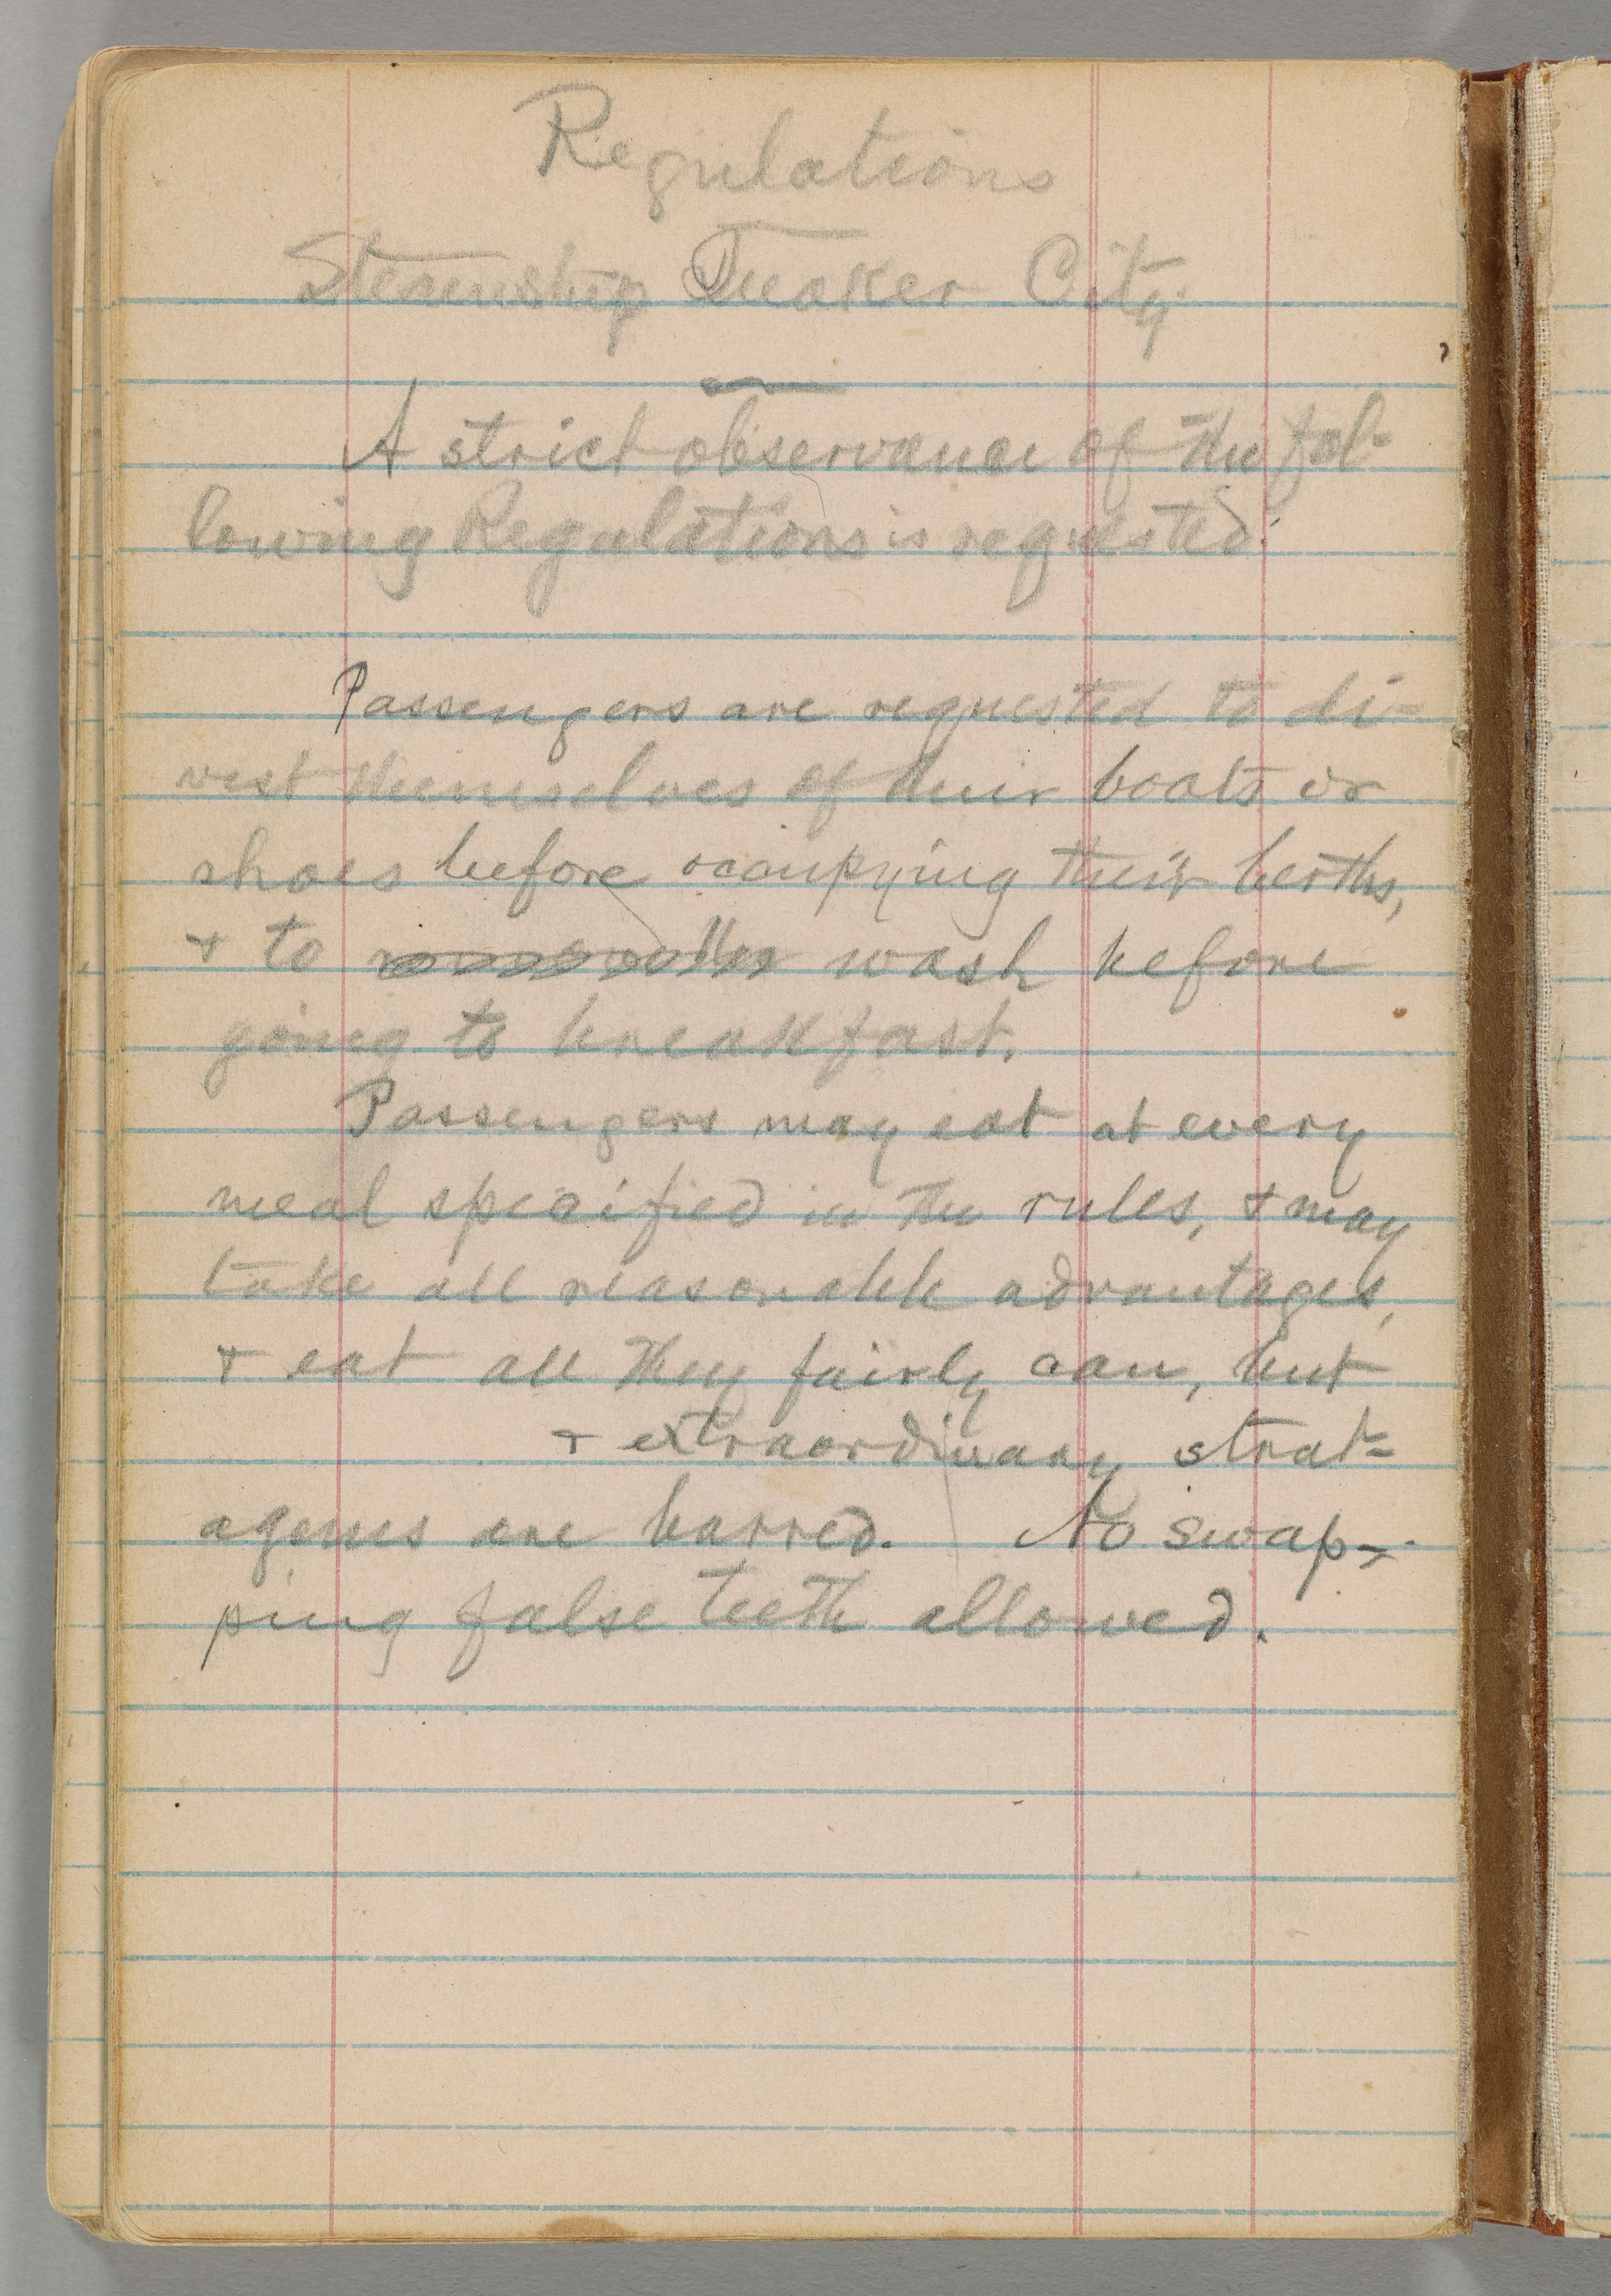 Regulations
Steamship Quaker City.
A strict observance of the fol-
lowing Regulations is requested:
Passengers are requested to di-
vest themselves of their boots or
shoes before occupying their berths,
& to wash before
going to breakfast.
Passengers may eat at every
meal specified in the rules, & may
take all reasonable advantages,
& eat all they fairly can, but
& extraordinary strat-
agems are barred. No swap-
ping false teeth allowed.